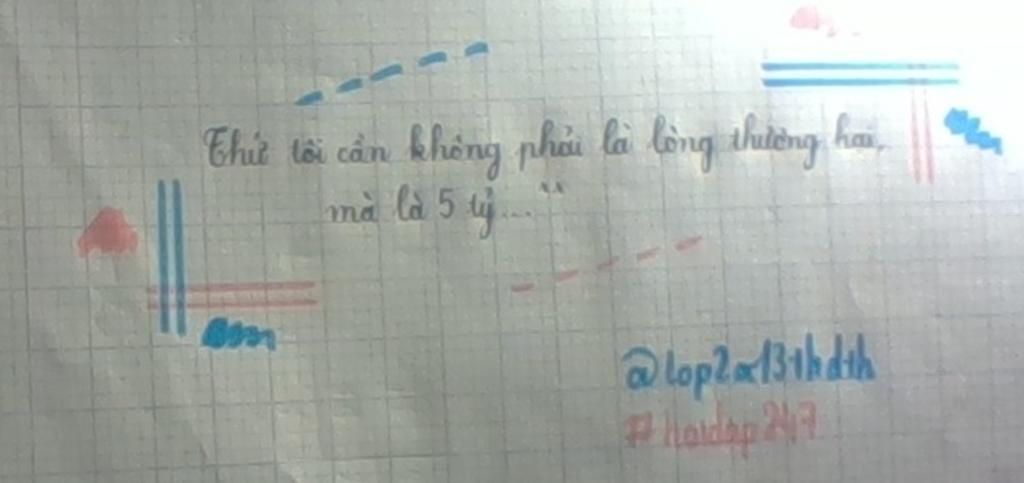 Thứ tôi cần không phải là lòng thương hại,
mà là 5 tỷ..."
@lop2a13thdth
#hoidap247